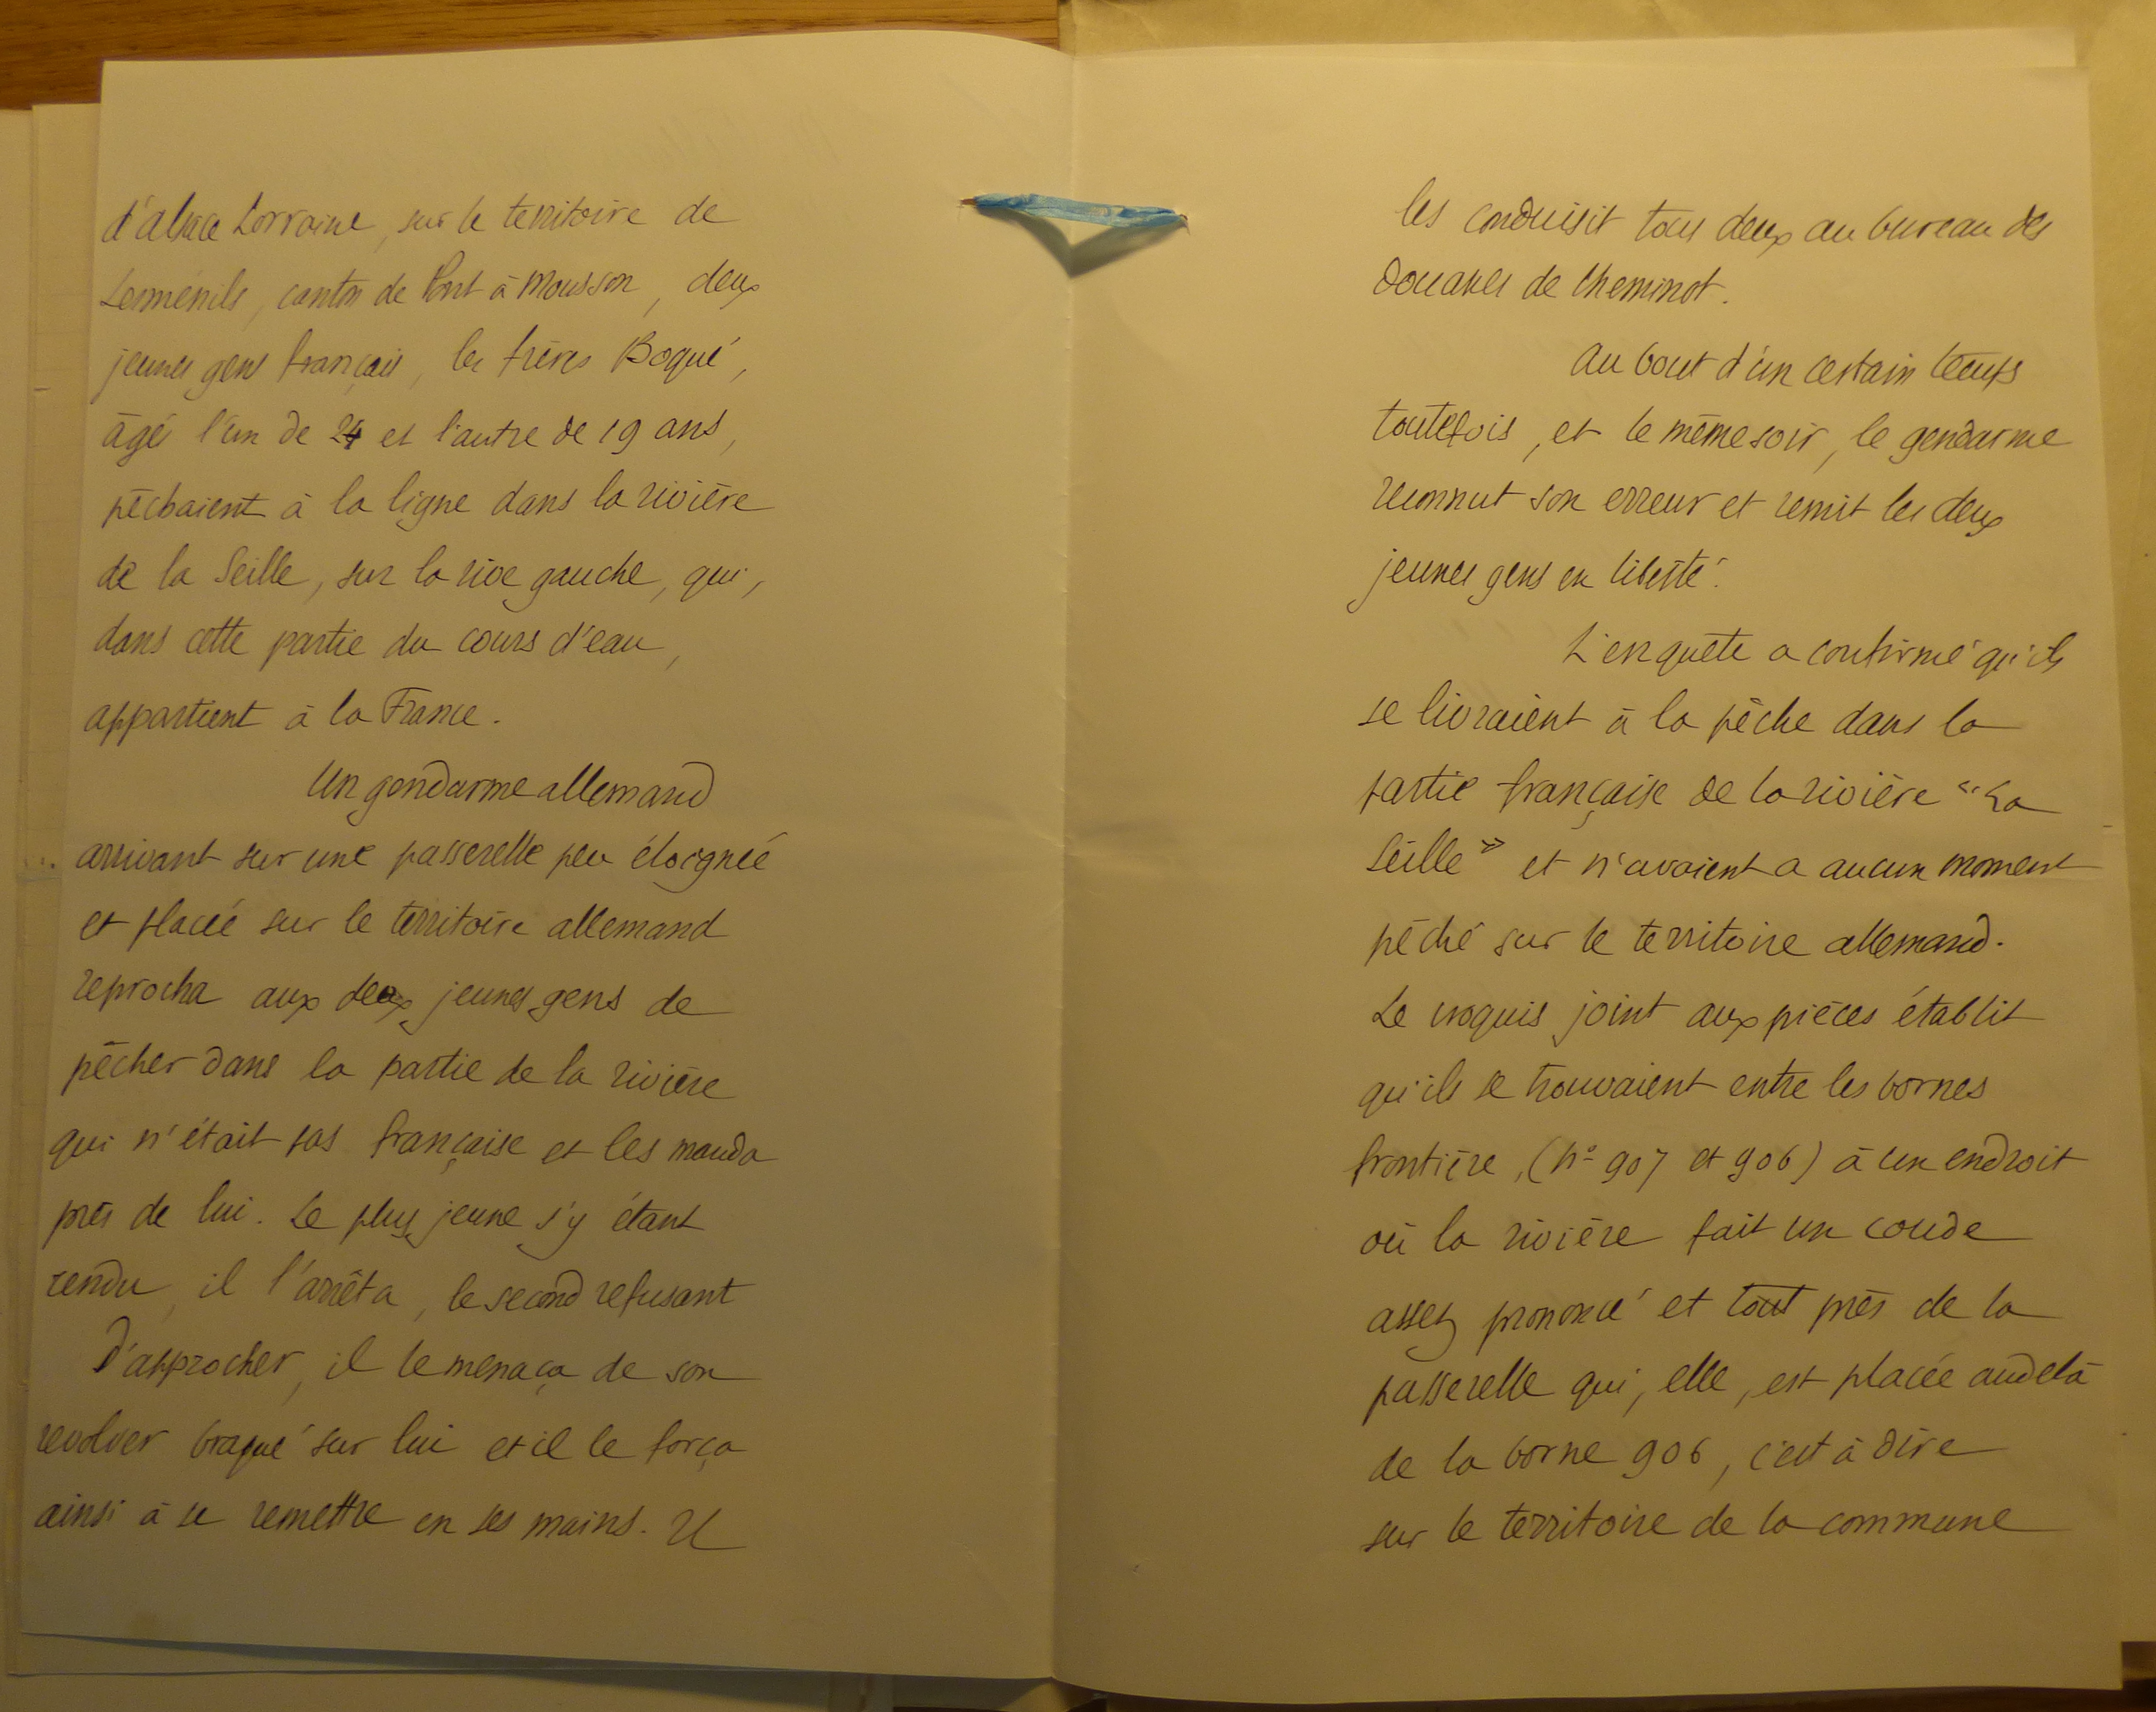 d'alsace Lorraine, sur le territoire de
Lesménils, canton de Pont à Mousson, deux
jeunes gens français, les frères Boqué,
âgé l'un de 24 et l'autre de 19 ans,
pêchaient à la ligne dans la rivière
de la Seille, sur la rive gauche, qui,
dans cette partie du cours d'eau,
appartient à la France.
Un gendarme allemand
arrivant sur une passerelle peu éloignée
et placée sur le territoire allemand
reprocha aux deux jeunes gens de
pêcher dans la partie de la rivière
qui n'était pas française et les manda
près de lui. Le plus jeune s'y étant
rendu, il l'arrêta, le second refusant
d'approcher, il le menaça de son
revolver braqué sur lui et il le força
ainsi à se remettre en ses mains. Il
les conduisit tous deux au bureau des
Douanes de Cheminot.
Au bout d'un certain temps
toutefois, et le même soir, le gendarme
reconnut son erreur et remit les deux
jeunes gens en liberté.
L'enquête a confirmé qu'ils
se livraient à la pêche dans la
partie française de la rivière "La
Seille" et n'avaient a aucun moment
pêché sur le territoire allemand.
Le croquis joint aux pièces établit
qu'ils se trouvaient entre les bornes
frontière, (nº 907 et 906) à un endroit
où la rivière fait un coude
assez prononcé et tout près de la
passerelle qui, elle, est placée audelà
de la borne 906, c'est à dire
sur le territoire de la commune